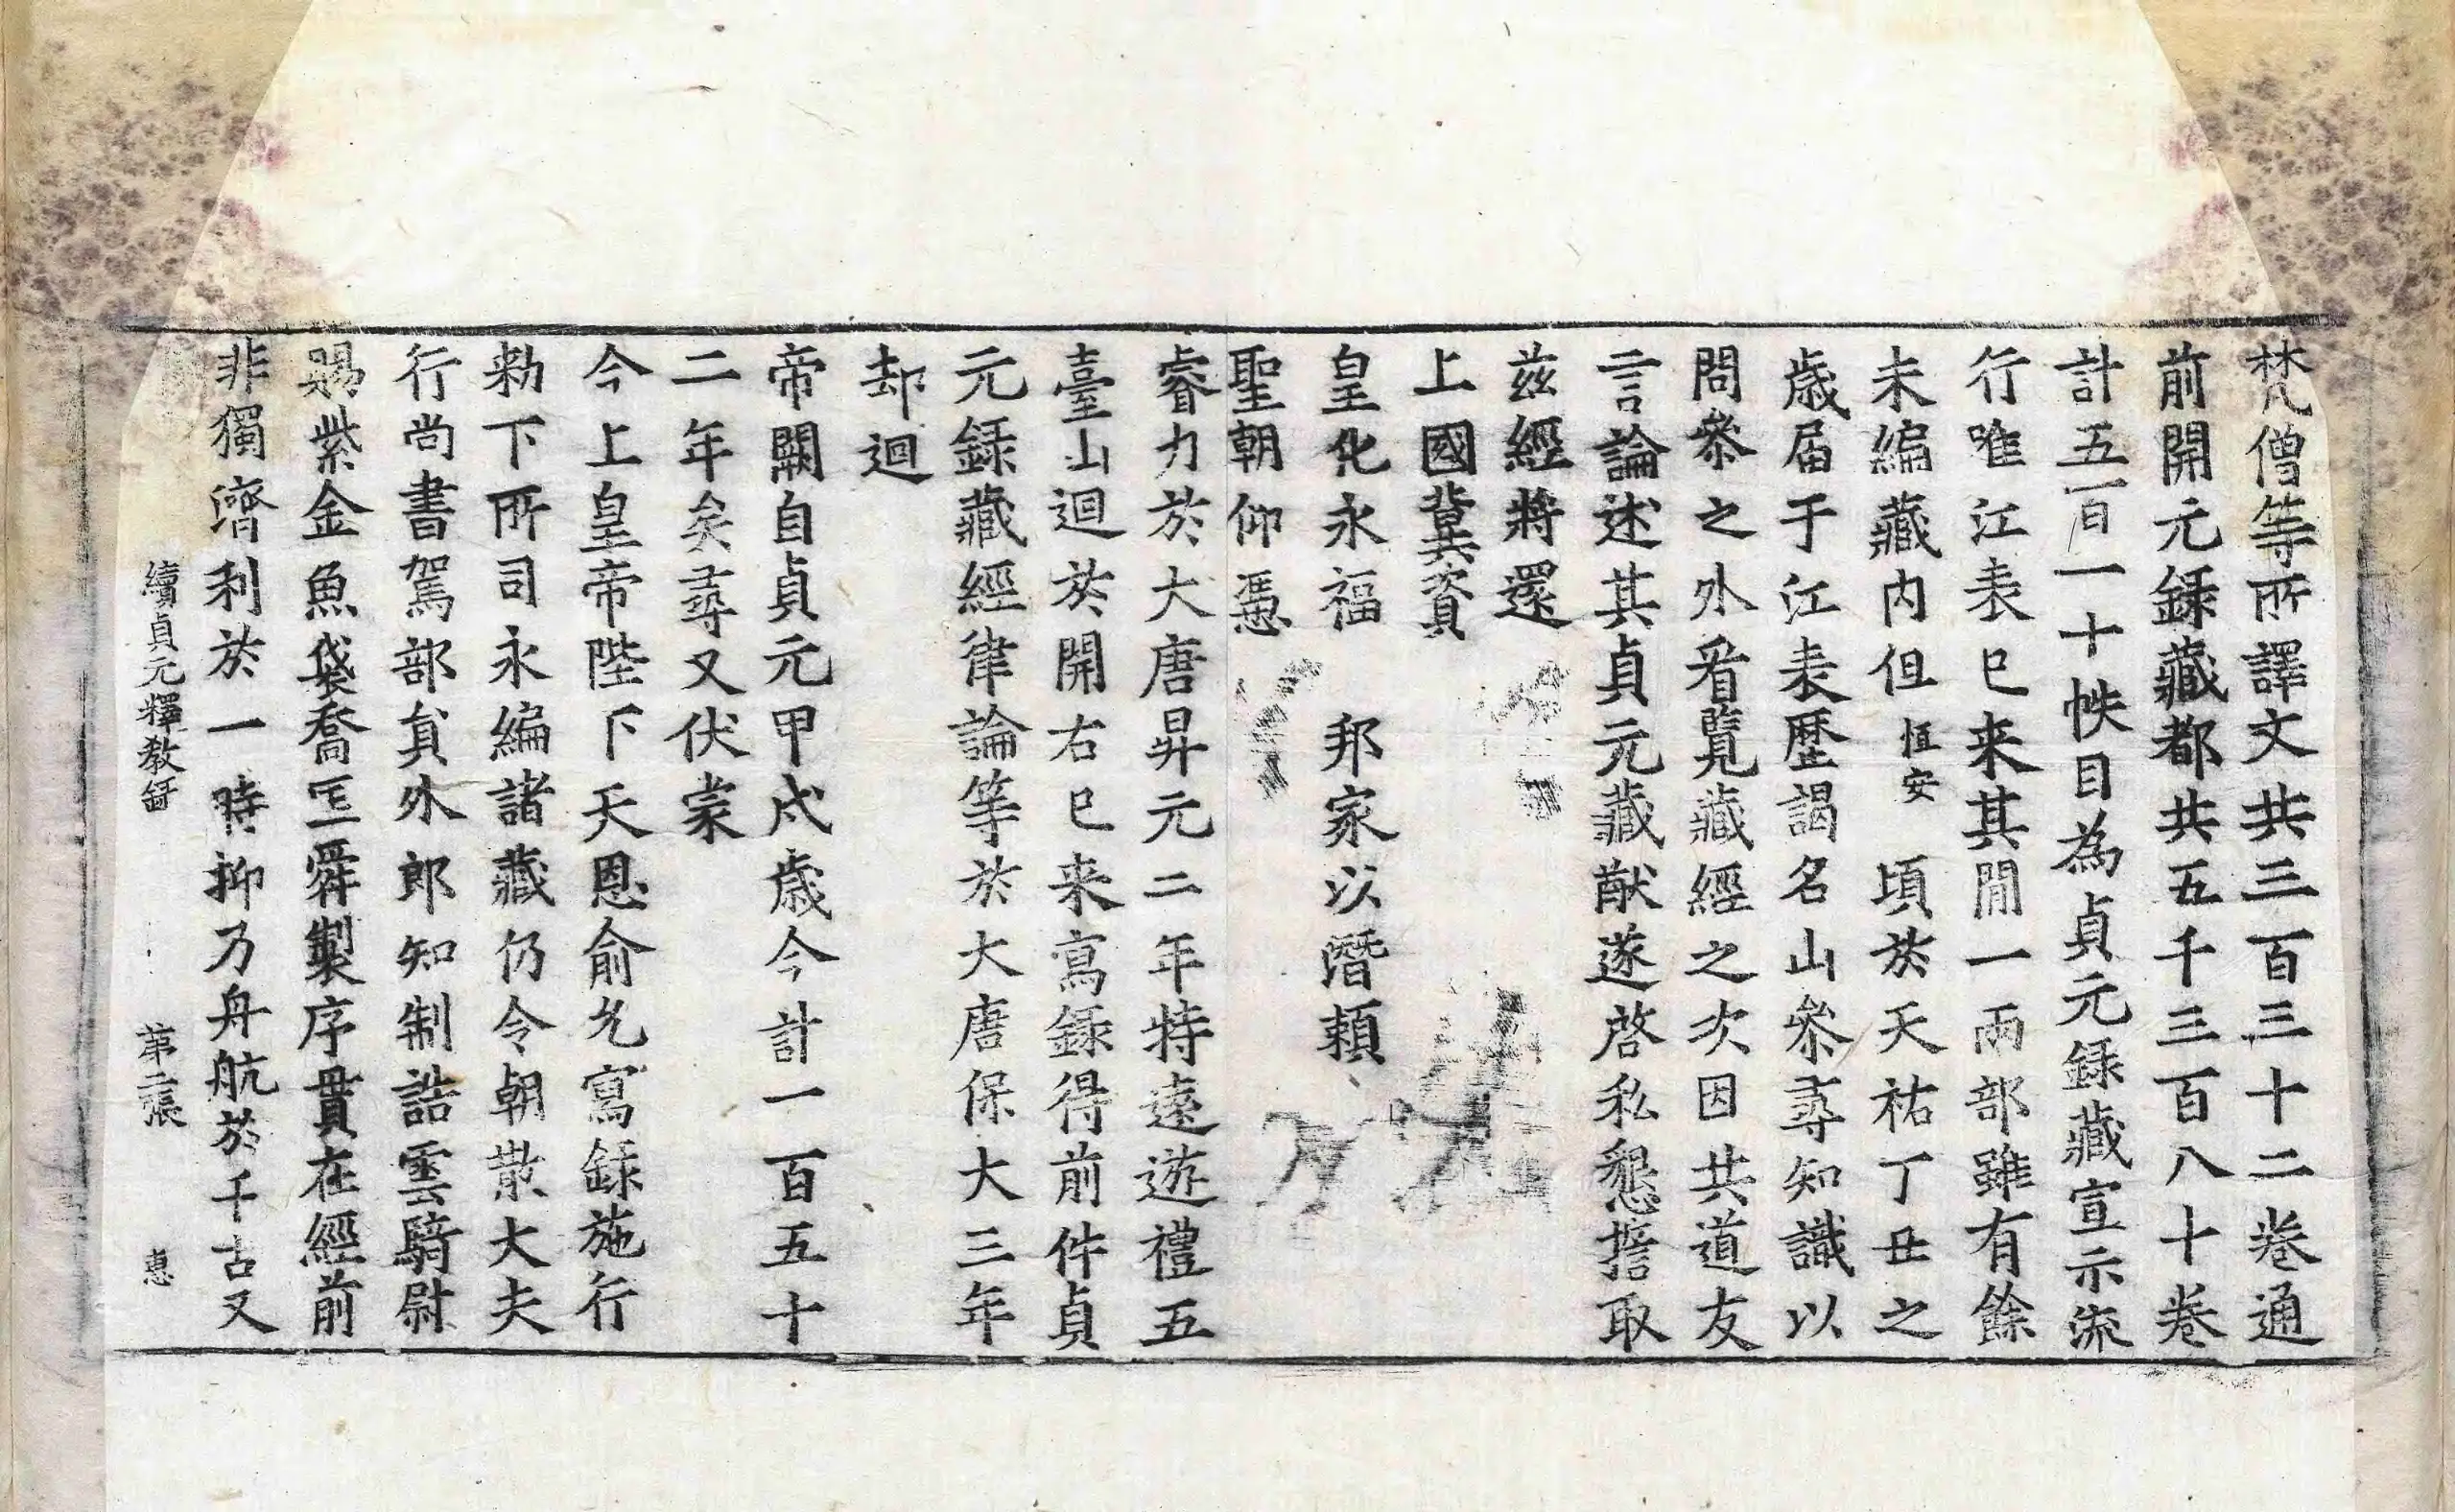 梵僧等所譯文共三百三十二卷通
前開元録藏都共五千三百八十卷
計五百一十帙目為貞元録藏宣示流
行唯江表巳来其間一兩部雖有餘
未編藏内但恒安頃於天祐丁丑之
歳届于江表歷謁名山叅尋知識以
問叅之外看覽藏經之次因共道友
言論述其貞元藏猷遂啓私懇擔取
兹經將還
上國冀資
皇化永福邦家以潛頼
聖朝仰憑
睿力於大唐昇元二年特遠遊禮五
臺山迴於開右巳来寫録得前件貞
元録藏經律論等於大唐保大三年
却迴
帝闕自貞元甲戌歳今計一百五十
二年矣尋又伏蒙
今上皇帝陛下天恩俞允寫録施行
勑下所司永編諸藏仍令朝散大夫
行尚書駕部貟外郎知制誥雲騎尉
賜紫金魚袋喬匡舜製序貫在經前
非獨濟利於一時抑乃舟航於千古又
續貞元釋教録 第二張 惠